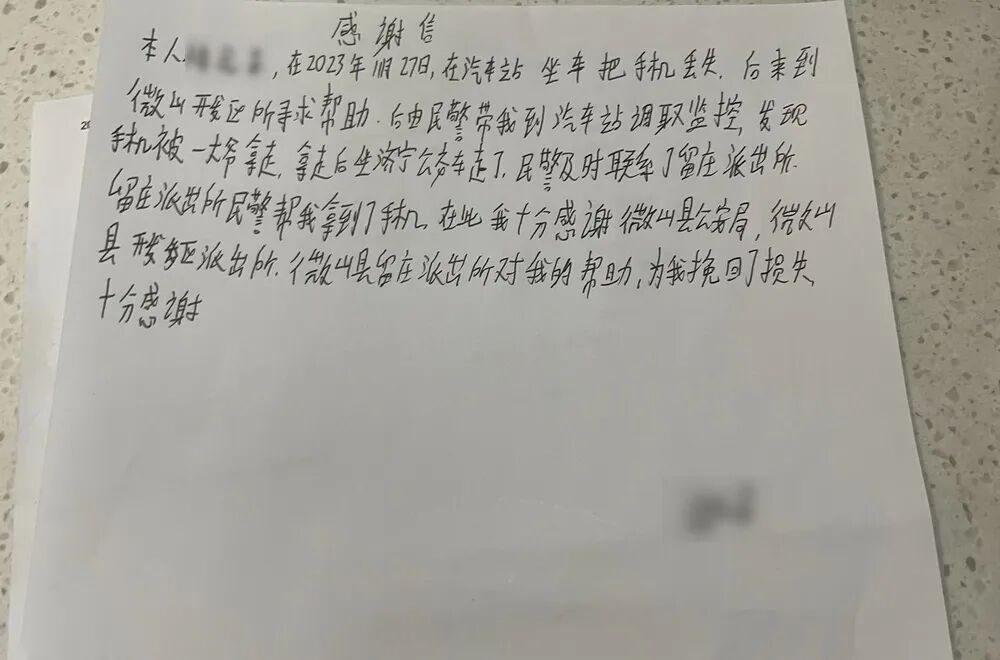 感谢信
本人 ,在2023年11月27日,在汽车站 坐车 把 手机 丢失. 后来到
微山 开发区所寻求帮助. 后由民警带我到汽车站调取监控, 发现
手机被一大爷拿走, 拿走后坐济宁公交车走了. 民警及时联系了留庄派出所.
留庄派出所民警帮我拿到了手机. 在此我十分感谢微山县公安局, 微山
县开发区派出所. 微山县留庄派出所对我的帮助, 为我挽回了损失
十分感谢
20